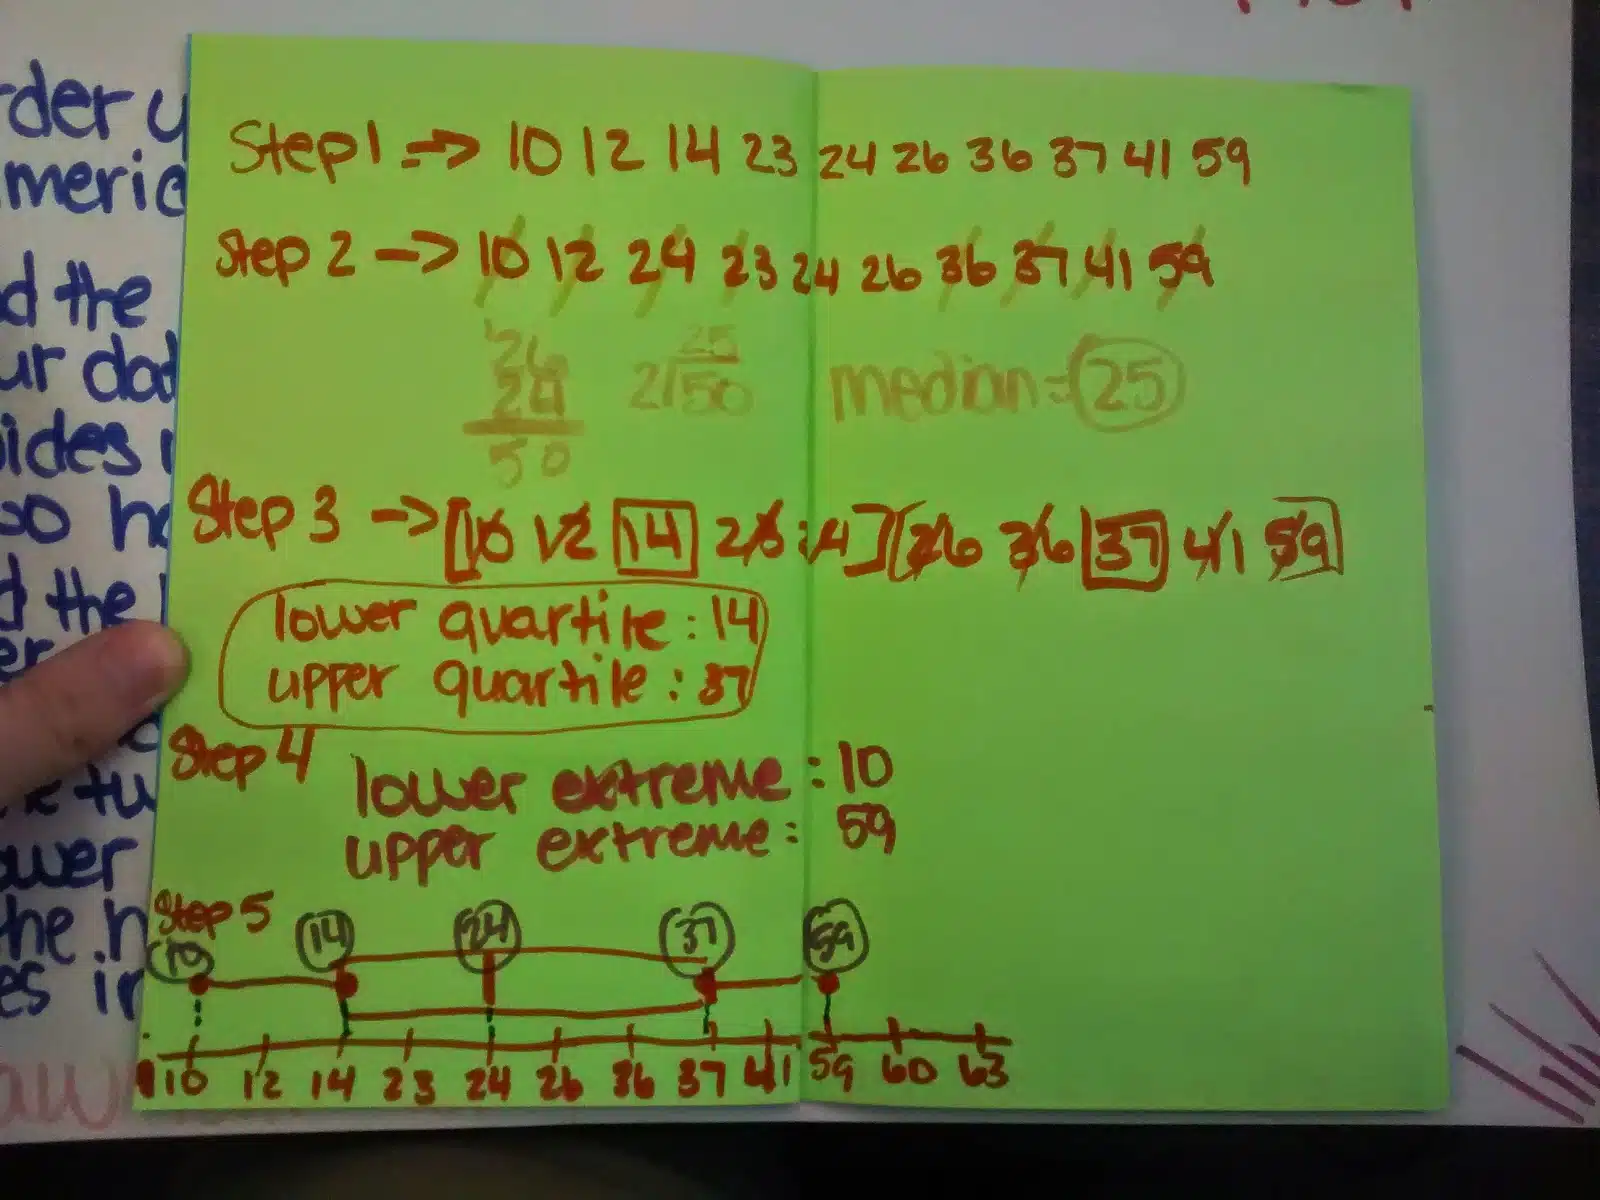 rder u
meric
d the
ur dat
ides
so ho
d the
er
tu
ower
the h
es in
aw
Step 1 -> 10 12 14 23 24 26 36 37 41 59
Step 2 -> 10 12 24 23 24 26 36 37 41 59
1
26
24
50
25
2 50
median = 25
Step 3 -> [10 12 14 23 24] [26 36 37 41 59]
lower quartile : 14
upper quartile : 37
Step 4
lower extreme : 10
upper extreme : 59
Step 5
10 14 24 37 59
10 12 14 23 24 26 36 37 41 59 60 63